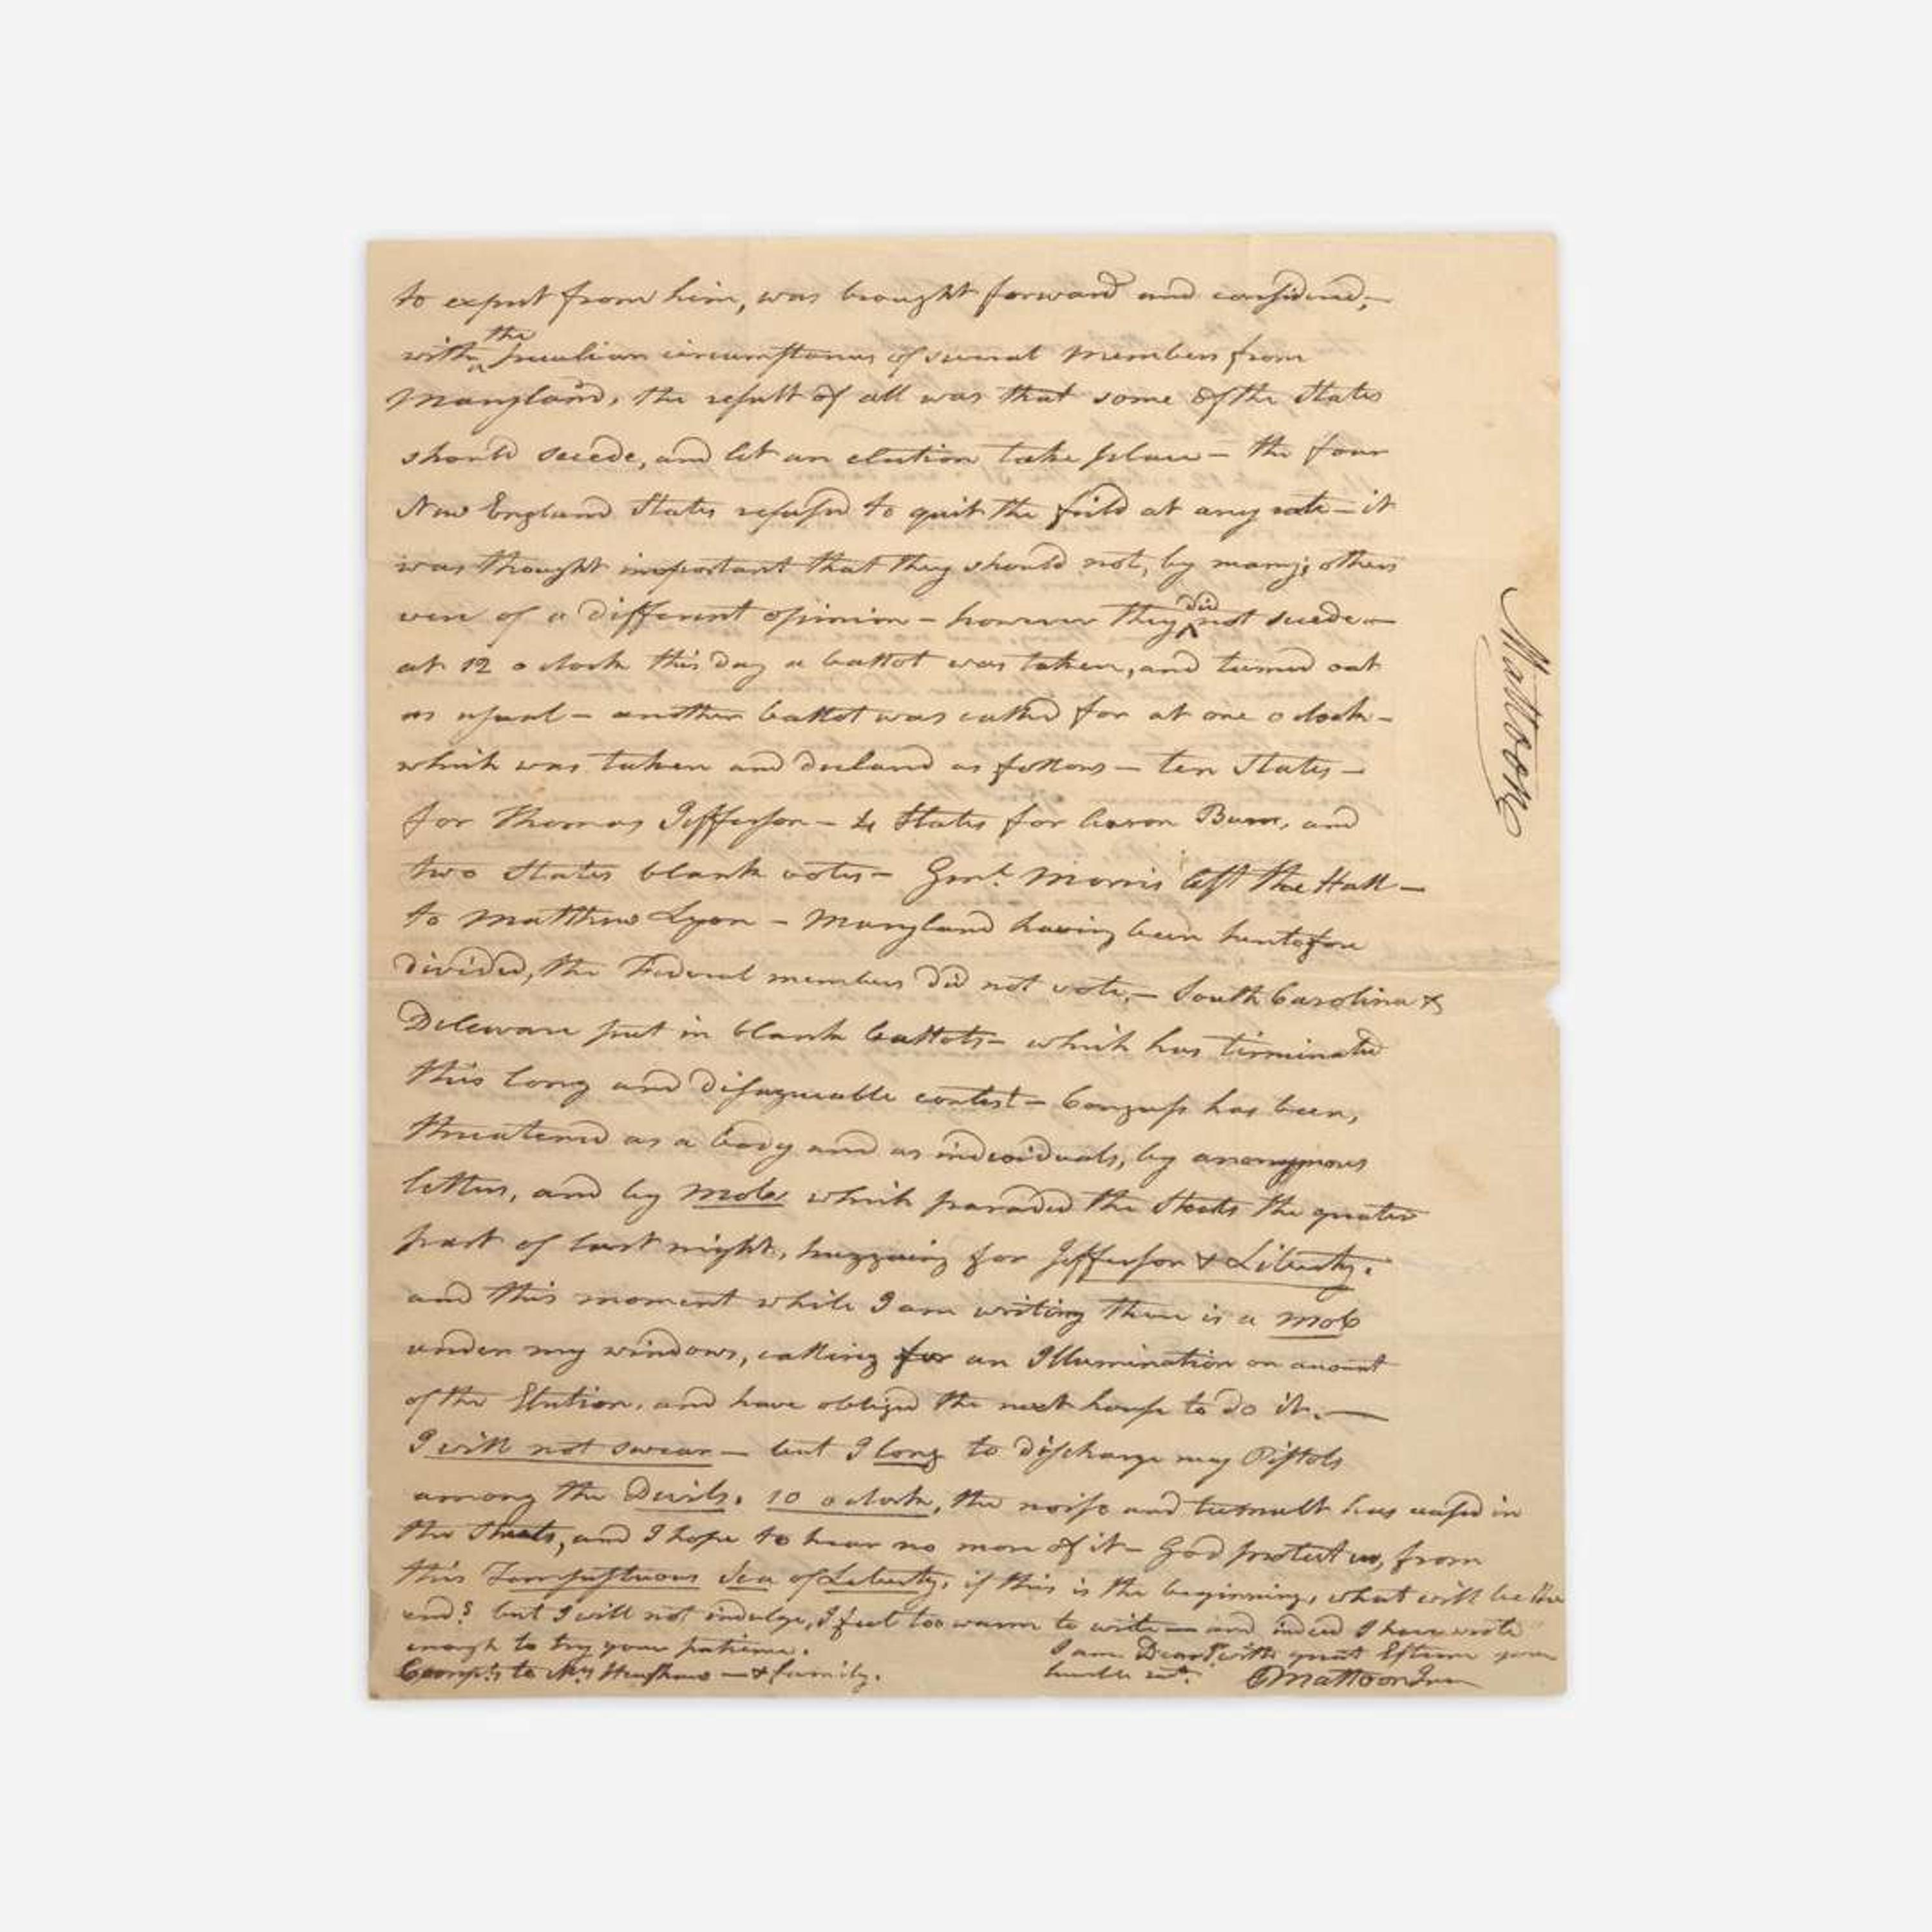 to expect from him, was brought forward and considered,—
the
with peculiar circumstances of several members from
Maryland, the result of all was that some of the States
should secede, and let an election take place — the four
New England States refused to quit the field at any rate — it
was thought important that they should not, by many; others
were of a different opinion — however they did not secede —
at 12 o clock this day a ballot was taken, and turned out
as usual — another ballot was called for at one o clock —
which was taken and declared as follows — ten States —
for Thomas Jefferson — 4 States for Aaron Burr, and
two States blank votes — Genl. Morris left the Hall —
to Matthew Lyon — Maryland having been heretofore
divided, the Federal members did not vote, — South Carolina &
Deleware put in blank ballots — which has terminated
this long and disagreeable contest — Congress has been,
threatened as a body and as individuals, by anonymous
letters, and by mobs which paraded the Streets the greater
part of last night, huzzaing for Jefferson & Liberty.
and this moment while I am writing there is a mob
under my windows, calling for an Illumination on account
of the Election, and have obliged the next house to do it. —
I will not swear — but I long to discharge my Pistols
among the Devils. 10 o clock, the noise and tumult has ceased in
the Streets, and I hope to hear no more of it — God protect us, from
this Tempestuous Sea of Liberty, if this is the beginning, what will be the
end? but I will not indulge, I feel too warm to write — and indeed I have wrote
enough to try your patience.
I am Dear Sr. with great Esteem your
Comp.ts to Mrs Henshaw — & family.
humble servt.
E Mattoon Jun
Mattoon